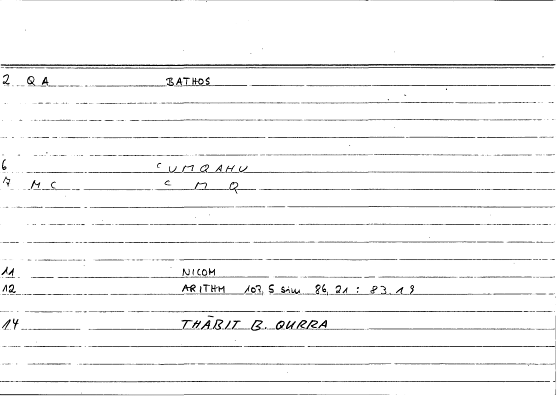 2 Q A BATHOS
6 ʿUMQAHU
7 M C ʿ M Q
11 NICOM
12 ARITHM 103,5 sim 86,21 : 83.19
14 THĀBIT B. QURRA